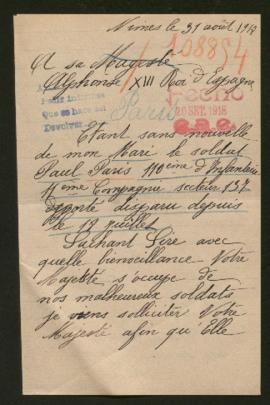 Nimes le 31 août 1915
108854
A sa Majesté
Alphonse XIII Roi d'Espagne
Paris
Fecho
20 SET. 1915
Devolver
Etant sans nouvelle
de mon Mari le soldat
Paul Paris 110ème d'Infanterie
11ème Compagnie secteur 137
disparu depuis
le 12 juillet
Sachant Sire avec
quelle bienveillance Votre
Majesté s'occupe de
nos malheureux soldats
je viens solliciter Votre
Majesté afin qu'Elle